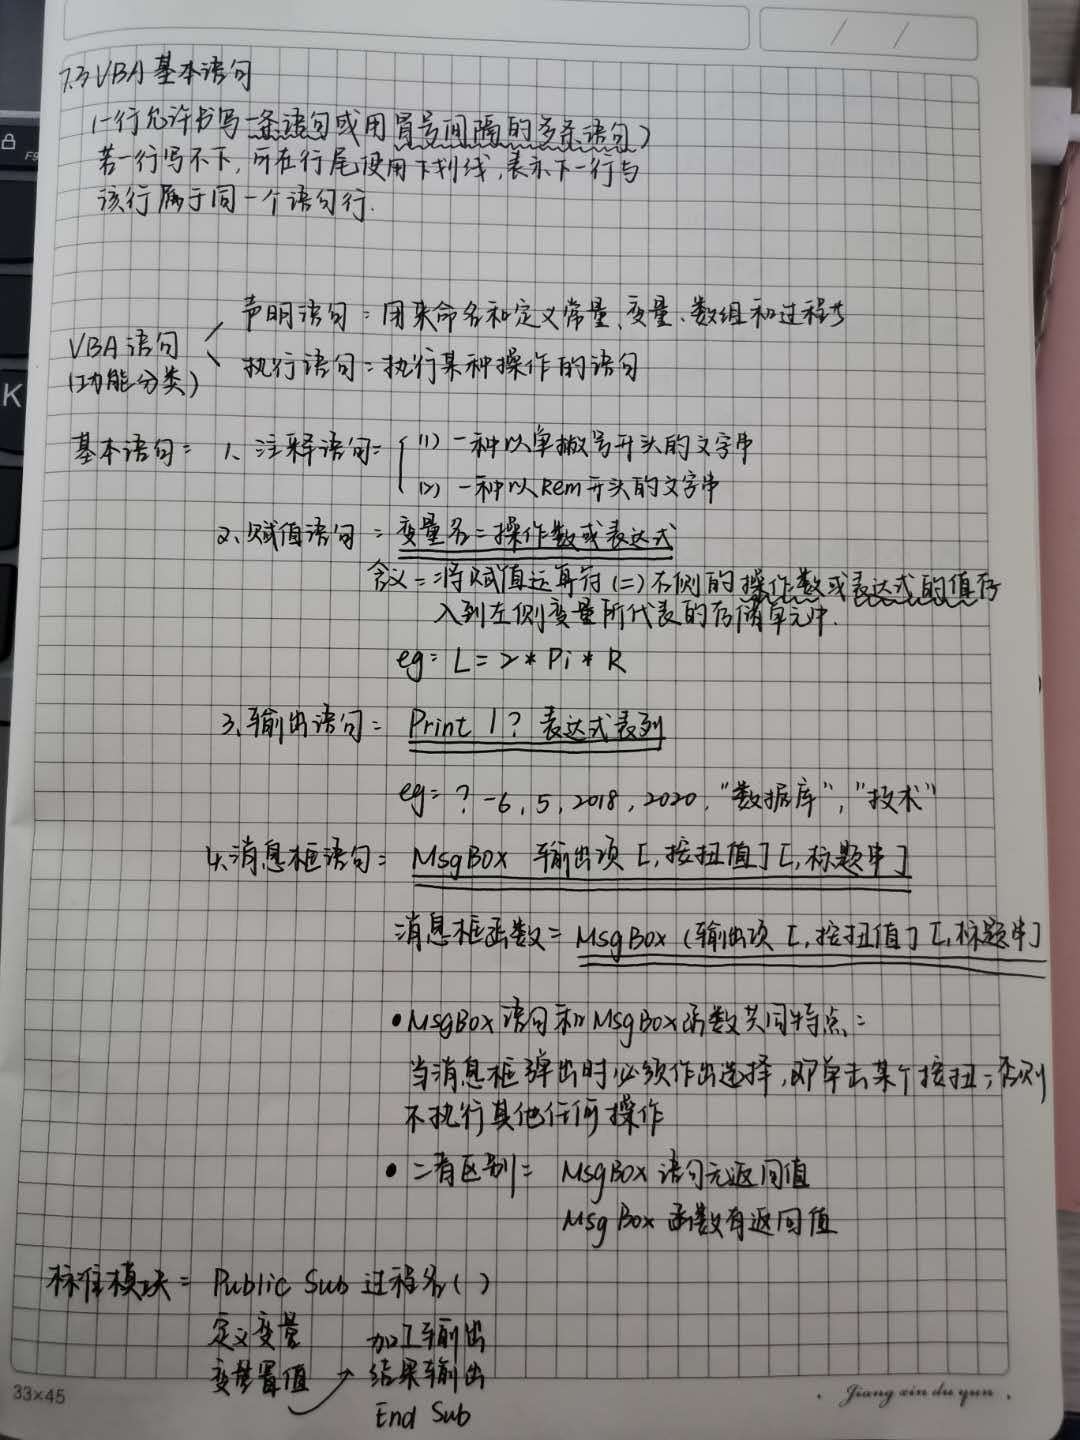 7.3 VBA 基本语句
(一行允许书写一条语句或用冒号间隔的多条语句)
若一行写不下,可在行尾使用下划线,表示下一行与
该行属于同一个语句行.
声明语句:用来命名和定义常量、变量、数组和过程等
VBA 语句
(功能分类)
执行语句:执行某种操作的语句
基本语句: 1、注释语句: (1) 一种以单撇号开头的文字串
(2) 一种以Rem开头的文字串
2、赋值语句:变量名=操作数或表达式
含义:将赋值运算符(=)右侧的操作数或表达式的值存
入到左侧变量所代表的存储单元中.
eg: L=2*Pi*R
3、输出语句: Print | ? 表达式表列
eg: ? -6, 5, 2018, 2020, "数据库", "技术"
4、消息框语句: MsgBox 输出项 [,按扭值] [,标题串]
消息框函数: MsgBox (输出项 [,按扭值] [,标题串]
• MsgBox 语句和 MsgBox 函数共同特点:
当消息框弹出时必须作出选择,即单击某个按扭;否则
不执行其他任何操作
• 二者区别: MsgBox 语句无返回值
MsgBox 函数有返回值
标准模块: Public Sub 过程名()
定义变量 加工输出
变量置值 结果输出
End Sub
33×45
Jiang xin du yun
K
F9